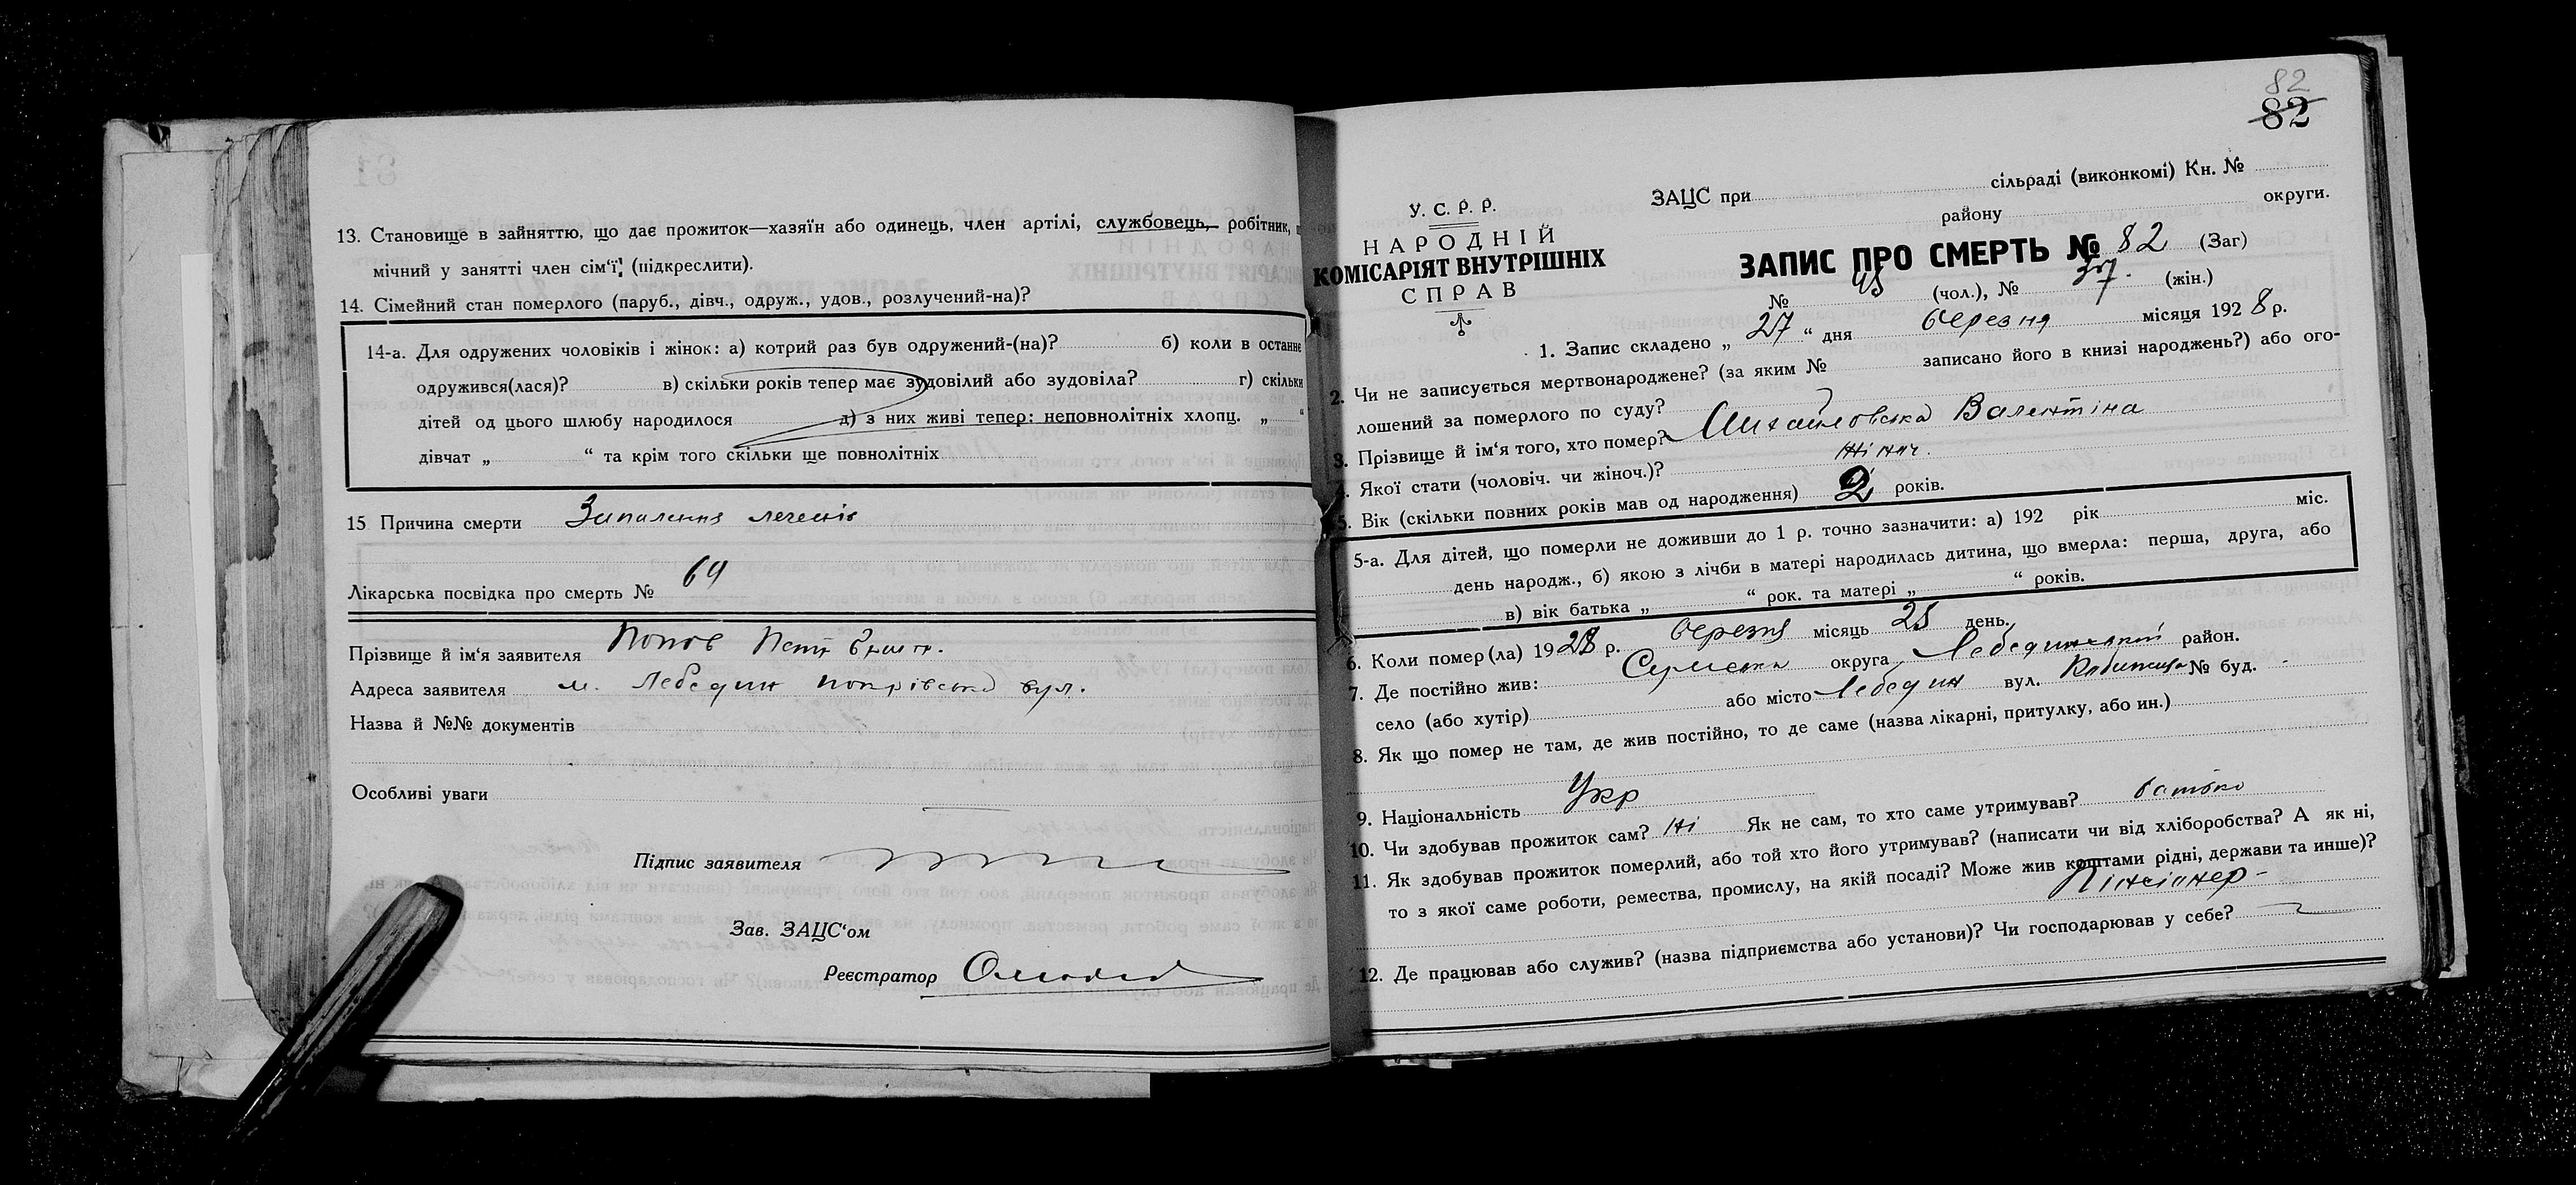 13. Становище в зайняттю, що дає прожиток—хазяїн або одинець, член артілі, службовець, робітник,
мічний у занятті член сім'ї, (підкреслити).
14. Сімейний стан померлого (паруб., дівч., одруж., удов., розлучений-на)?
14-а. Для одружених чоловіків і жінок: а) котрий раз був одружений-(на)? б) коли в останнє
одружився(лася)? в) скільки років тепер має зудовілий або зудовіла? г) скільки
дітей од цього шлюбу народилося д) з них живі тепер: неповнолітніх хлопц. „ “
дівчат „ “ та крім того скільки ще повнолітніх
15 Причина смерти Запалення легенів
Лікарська посвідка про смерть № 64
Прізвище й ім'я заявителя Попов
Адреса заявителя м. Лебедин Покрівська вул.
Назва й №№ документів
Особливі уваги
Підпис заявителя
Зав. ЗАЦС'ом
Реєстратор
82
82
У. С. Р. Р.
НАРОДНІЙ
КОМІСАРІЯТ ВНУТРІШНІХ
СПРАВ
ЗАЦС при сільраді (виконкомі) Кн. №
району округи.
ЗАПИС ПРО СМЕРТЬ № 82 (Заг)
№ 45 (чол.), № 37. (жін.)
1. Запис складено „ 27 “ дня березня місяця 1928 р.
2. Чи не записується мертвонароджене? (за яким № записано його в книзі народжень?) або ого-
лошений за померлого по суду?
3. Прізвище й ім'я того, хто помер? Михайловська Валентіна
4. Якої стати (чоловіч. чи жіноч.)? жіноч.
5. Вік (скільки повних років мав од народження) 2 років.
5-а. Для дітей, що померли не доживши до 1 р. точно зазначити: а) 192 рік міс.
день народж., б) якою з лічби в матері народилась дитина, що вмерла: перша, друга, або
в) вік батька „ “ рок. та матері „ “ років.
6. Коли помер(ла) 1928 р. березня місяць 25 день.
7. Де постійно жив: Сумська округа Лебединський район.
село (або хутір) або місто Лебедин вул. № буд. -
8. Як що помер не там, де жив постійно, то де саме (назва лікарні, притулку, або ин.)
9. Національність Укр
10. Чи здобував прожиток сам? Ні Як не сам, то хто саме утримував? батько
11. Як здобував прожиток померлий, або той хто його утримував? (написати чи від хліборобства? А як ні,
то з якої саме роботи, ремества, промислу, на якій посаді? Може жив коштами рідні, держави та инше)?
Пінсіонер-
12. Де працював або служив? (назва підприємства або установи)? Чи господарював у себе?